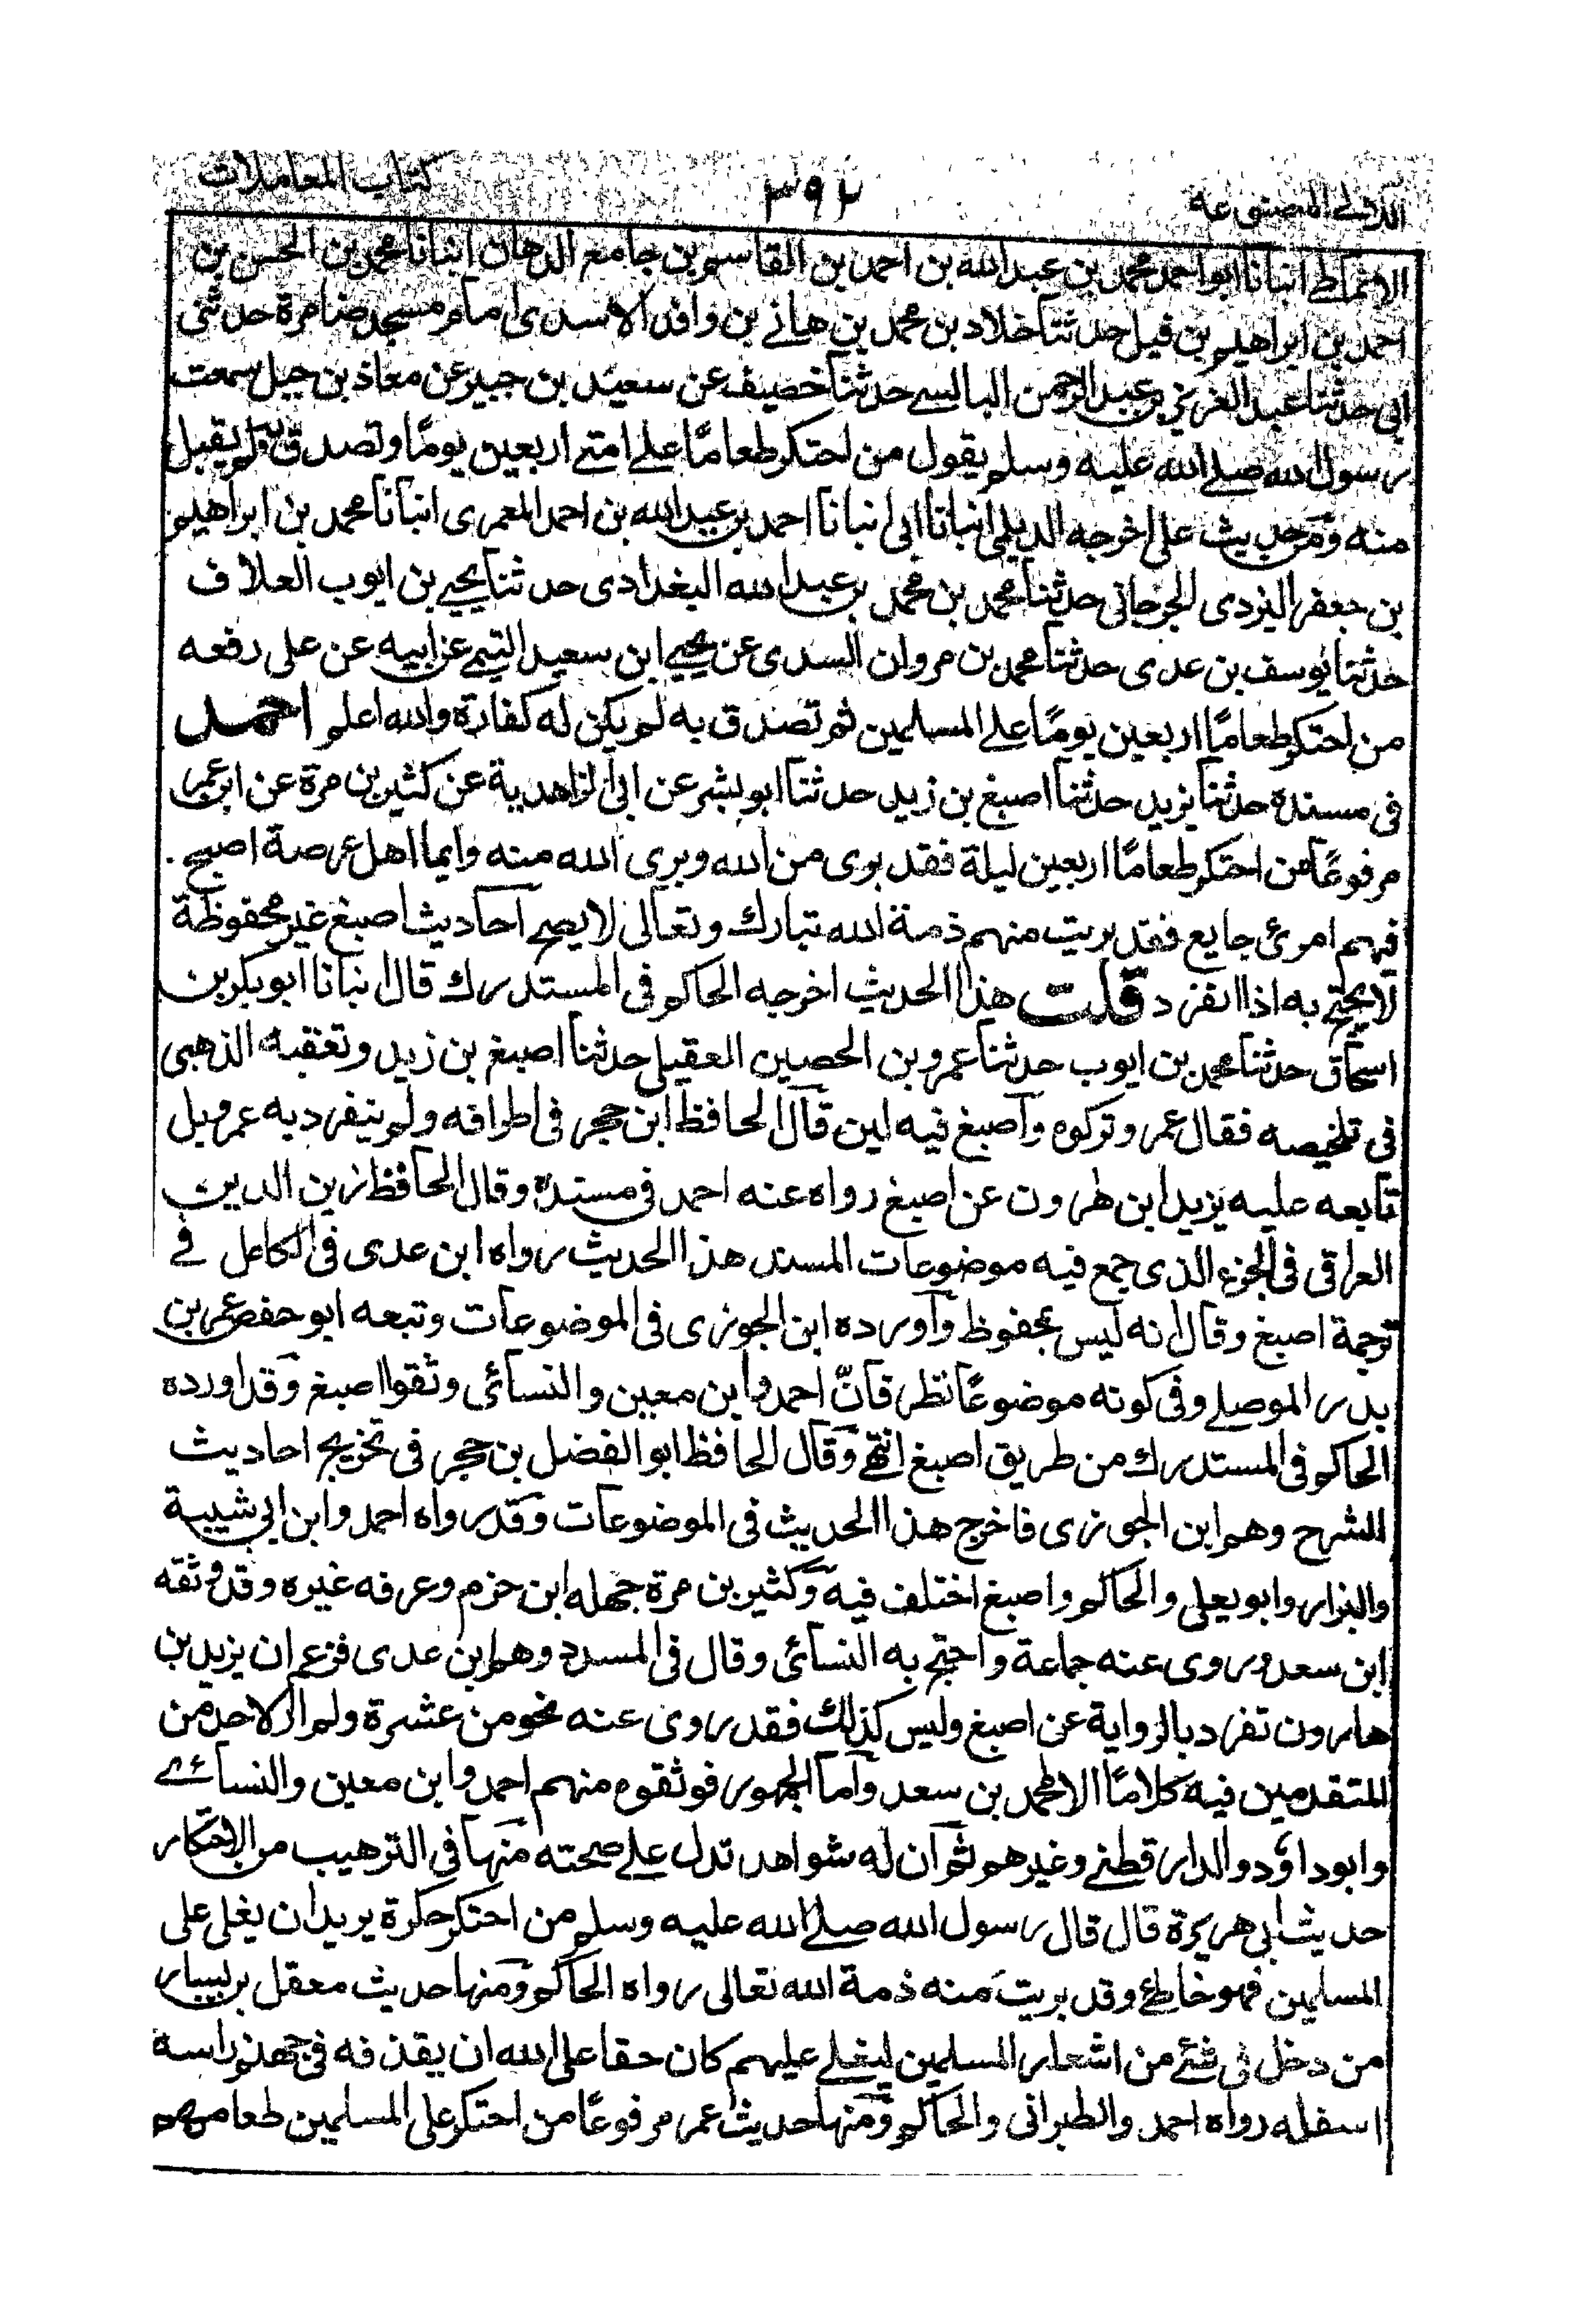 اللآلى المصنوعة ٣٩٢ كتاب المعاملات
الانماطى انبانا ابو احمد محمد بن عبد الله بن احمد بن القاسم بن جامع الدهان انبانا محمد بن الحسن بن
احمد بن ابراهيم بن فيل حدثنا خلاد بن محمد بن هانے بن واقد الاسدى امام مسجد ضامرة حدثنى
ابى حدثنا عبد العزيز بن عبد الرحمن البالسے حدثنا خصيف عن سعيد بن جبير عن معاذ بن جبل سمعت
رسول الله صلے الله عليه وسلم يقول من احتكر طعامًا علے امتے اربعين يومًا وتصدق به لم يقبل
منه ومن حديث على اخرجه الديلمى انبانا ابى انبانا احمد بن عبيد الله بن احمد المعمرى انبانا محمد بن ابراهيم
بن جعفر اليزدى الجرجانى حدثنا محمد بن محمد بن عبد الله البغدادى حدثنا يحيے بن ايوب العلاف
حدثنا يوسف بن عدى حدثنا محمد بن مروان السدى عن يحيے ابن سعيد التيمے عن ابيه عن على رفعه
من احتكر طعامًا اربعين يومًا علے المسلمين ثم تصدق به لم يكن له كفارة والله اعلم احمد
فى مسنده حدثنا يزيد حدثنا اصبغ بن زيد حدثنا ابو بشر عن ابى الزاهدية عن كثير بن مرة عن ابن عمر
مرفوعًا من احتكر طعامًا اربعين ليلة فقد برى من الله وبرى الله منه وايما اهل عرصة اصبح
فيهم امرئ جايع فقد بريت منهم ذمة الله تبارك وتعالى لا يصح احاديث اصبغ غير محفوظة
لا يحتج به اذا انفرد قلت هذا الحديث اخرجه الحاكم فى المستدرك قال انبانا ابو بكر بن
اسحاق حدثنا محمد بن ايوب حدثنا عمرو بن الحصين العقيلى حدثنا اصبغ بن زيد وتعقبه الذهبى
فى تلخيصه فقال عمرو تركوه واصبغ فيه لين قال الحافظ ابن حجر فى اطرافه ولم ينفرد به عمرو بل
تابعه عليه يزيد ابن هٰرون عن اصبغ رواه عنه احمد فى مسنده وقال الحافظ زين الدين
العراقى فى الجزء الذى جمع فيه موضوعات المسند هذا الحديث رواه ابن عدى فى الكامل فے
ترجمة اصبغ وقال انه ليس بمحفوظ واورده ابن الجوزى فى الموضوعات وتبعه ابو حفص عمر بن
بدر الموصلے وفى كونه موضوعًا نظر فانّ احمد وابن معين والنسائى وثقوا اصبغ وقد اورده
الحاكم فى المستدرك من طريق اصبغ انتهے وقال الحافظ ابو الفضل بن حجر فى تخريج احاديث
الشرح وهم ابن الجوزى فاخرج هذا الحديث فى الموضوعات وقد رواه احمد وابن ابى شيبة
والبزار وابو يعلى والحاكم واصبغ اختلف فيه وكثير بن مرة جهله ابن حزم وعرفه غيره وقد وثقه
ابن سعد وروى عنه جماعة واحتج به النسائى وقال فى المسدد وهم ابن عدى فزعم ان يزيد بن
هارون تفرد بالرواية عن اصبغ وليس كذلك فقد روى عنه نحو من عشرة ولم ار لاحد من
المتقدمين فيه كلامًا الا لمحمد بن سعد واما الجمهور فوثقوه منهم احمد وابن معين والنسائے
وابو داؤد والدارقطنے وغيرهم ثم ان له شواهد تدل علے صحته منها فى الترهيب من الاحتكار
حديث ابى هريرة قال قال رسول الله صلے الله عليه وسلم من احتكر حكرة يريد ان يغلى على
المسلمين فهو خاطئ وقد بريت منه ذمة الله تعالى رواه الحاكم ومنها حديث معقل بن يسار
من دخل فى شئے من اشعار المسلمين ليغلے عليهم كان حقا على الله ان يقذفه فى جهنم راسه
اسفله رواه احمد والطبرانى والحاكم ومنها حديث عمر مرفوعًا من احتكر على المسلمين طعامهم